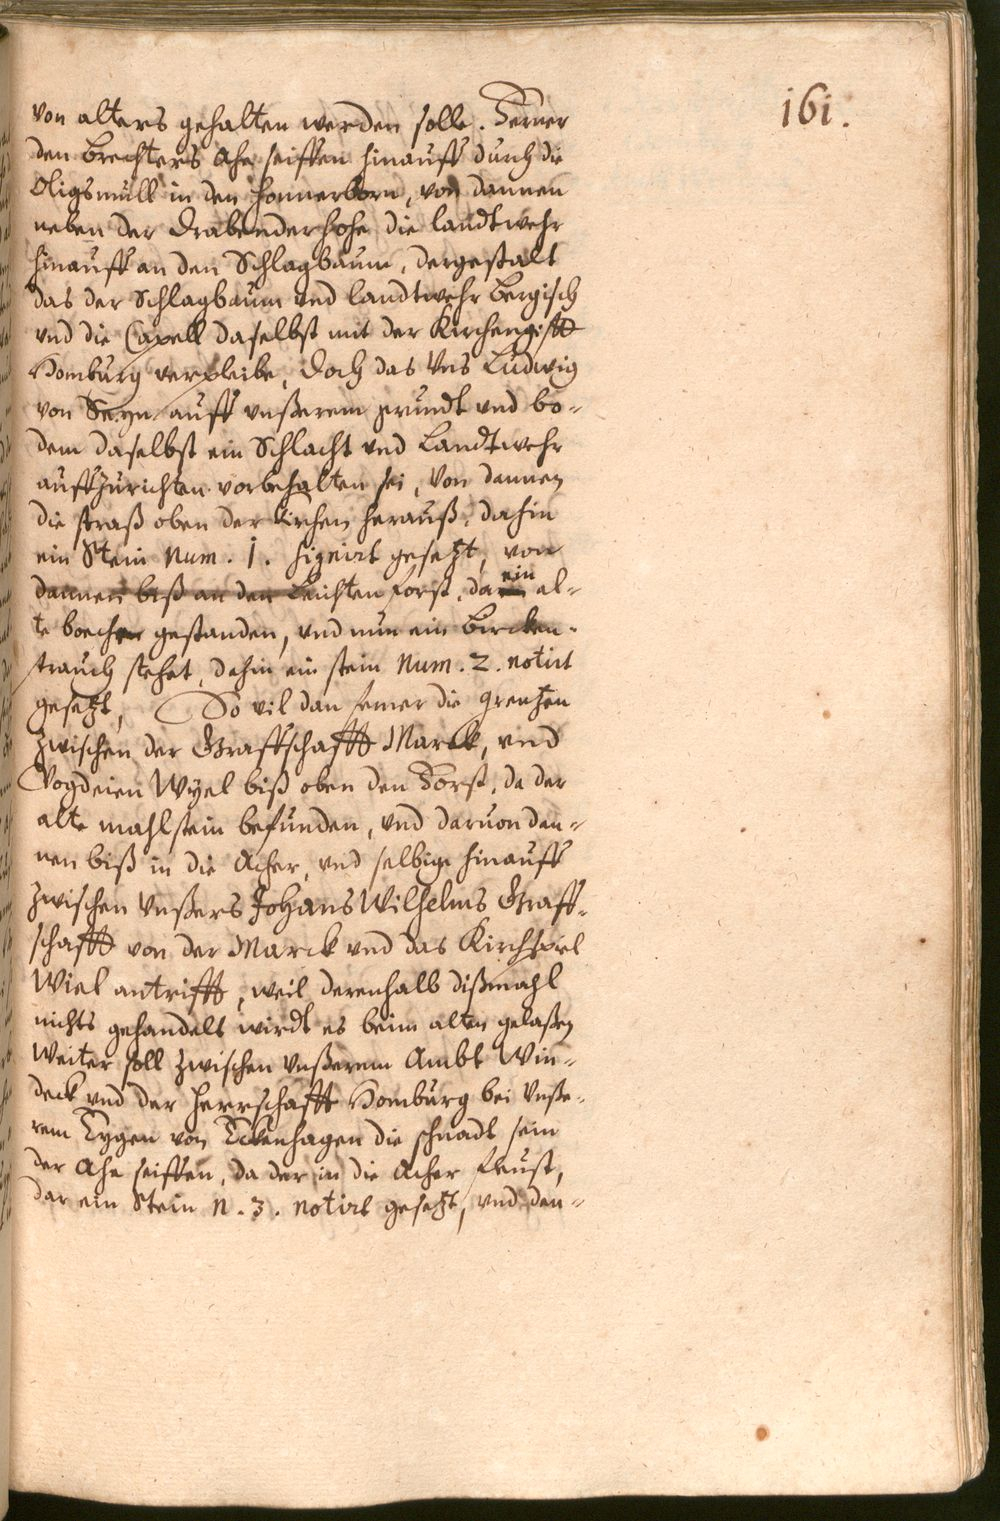 161.
von alters gehalten werden solle. Ferner
den Brechters Ahe seiffen hinauff durch die
Oligsmüll in den Honnerborn, von dannen
neben der Drabenderhohe die landtwehr
hinauff an den Schlagbaum, dergestalt
das der Schlagbaum vnd landtwehr Bergisch
vnd die Capell daselbst mit der Kirchengifft
Homburg verpleibe, Doch das Vns Ludwig
von Seyn auff vnßerem grundt vnd bo-
dem daselbst ein Schlacht vnd Landtwehr
auffzurichten vorbehalten sei, Von dannen
die straß oben der Kirchen herauß, dahin
ein Stein Num. 1. signirt gesetzt, von
dannen biß an den Leichten forst, da ein al-
te boechen gestanden, vnd nun ein Bircken-
strauch stehet, dahin ein stein Num. 2. notirt
gesetzt, So vil dan ferner die Grentzen
zwischen der Graffschafft Marck, vnd
Vogdeien Wyel biß oben den Forst, da der
alte mahlstein befunden, vnd daruon dan-
nen biß in die Acher, vnd selbige hinauff
zwischen Vnßers Johans Wilhelms Graff-
schafft von der Marck vnd das Kirchspiel
Wiel antrifft, weil derenhalb dißmahl
nichts gehandelt wirdt es beim alten gelaßen
Weiter soll zwischen Vnßerem Ambt Win-
deck vnd der Herrschafft Homburg bei Vnße-
rem Eygen von Eckenhagen die schnadt sein
der Ahe seiffen, da der in die Acher fleust,
dar ein Stein N. 3. notirt gesetzt, vnd dan-